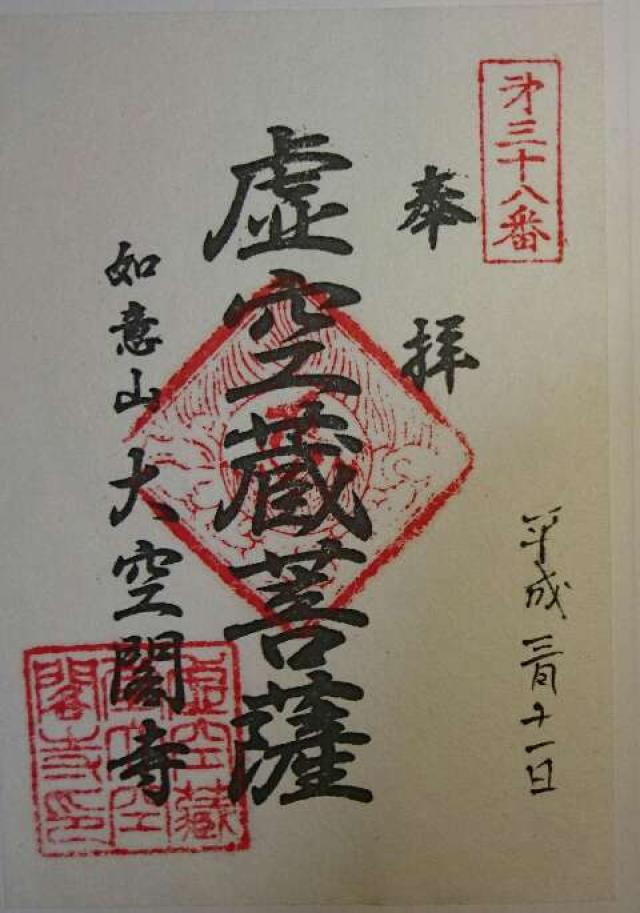 第三十八番
奉拝
平成 三月十一日
虚空蔵菩薩
如意山 大空閣寺
虚空藏
閣寺印